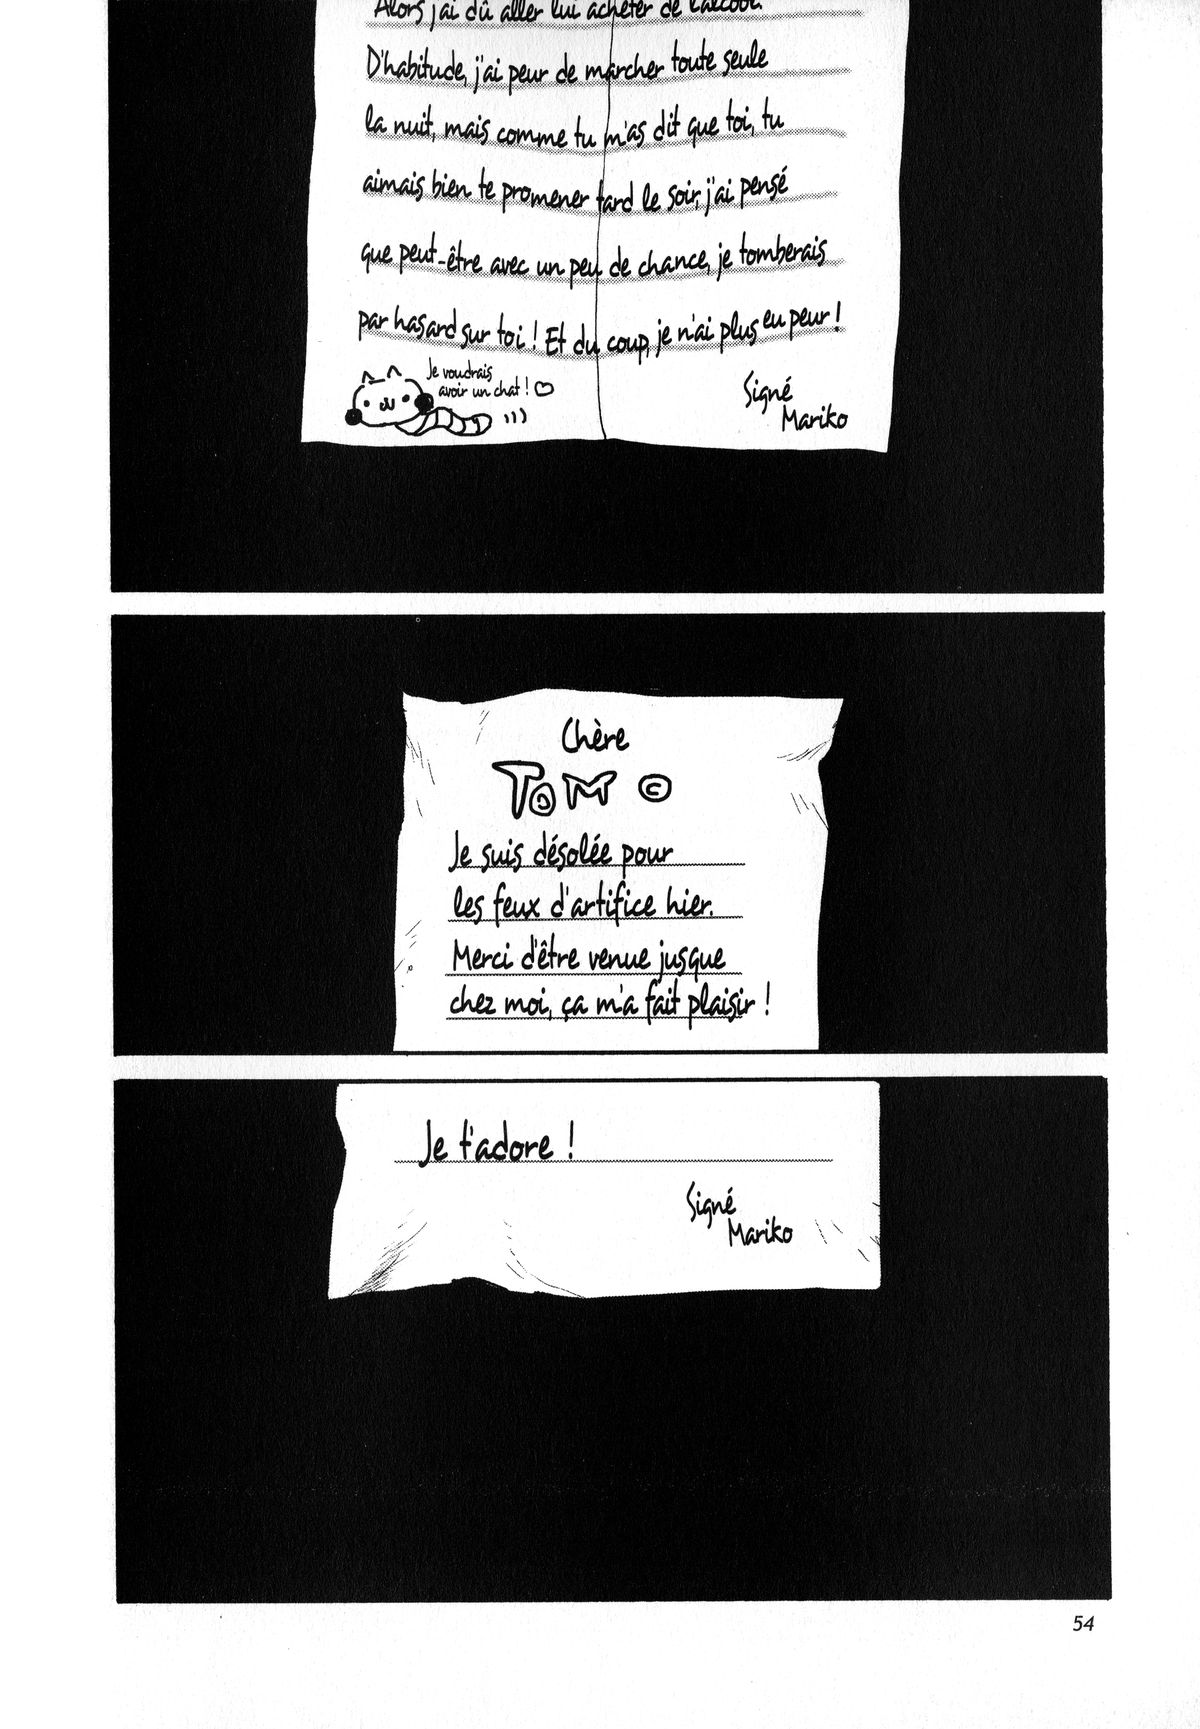 Alors j'ai dû aller lui acheter de l'alcool.
D'habitude, j'ai peur de marcher toute seule
la nuit, mais comme tu m'as dit que toi, tu
aimais bien te promener tard le soir, j'ai pensé
que peut-être avec un peu de chance, je tomberais
par hasard sur toi ! Et du coup, je n'ai plus eu peur !
Je voudrais
avoir un chat ! ♡
Signé
Mariko
Chère
TOMO
Je suis désolée pour
les feux d'artifice hier.
Merci d'être venue jusque
chez moi, ça m'a fait plaisir !
Je t'adore !
Signé
Mariko
54